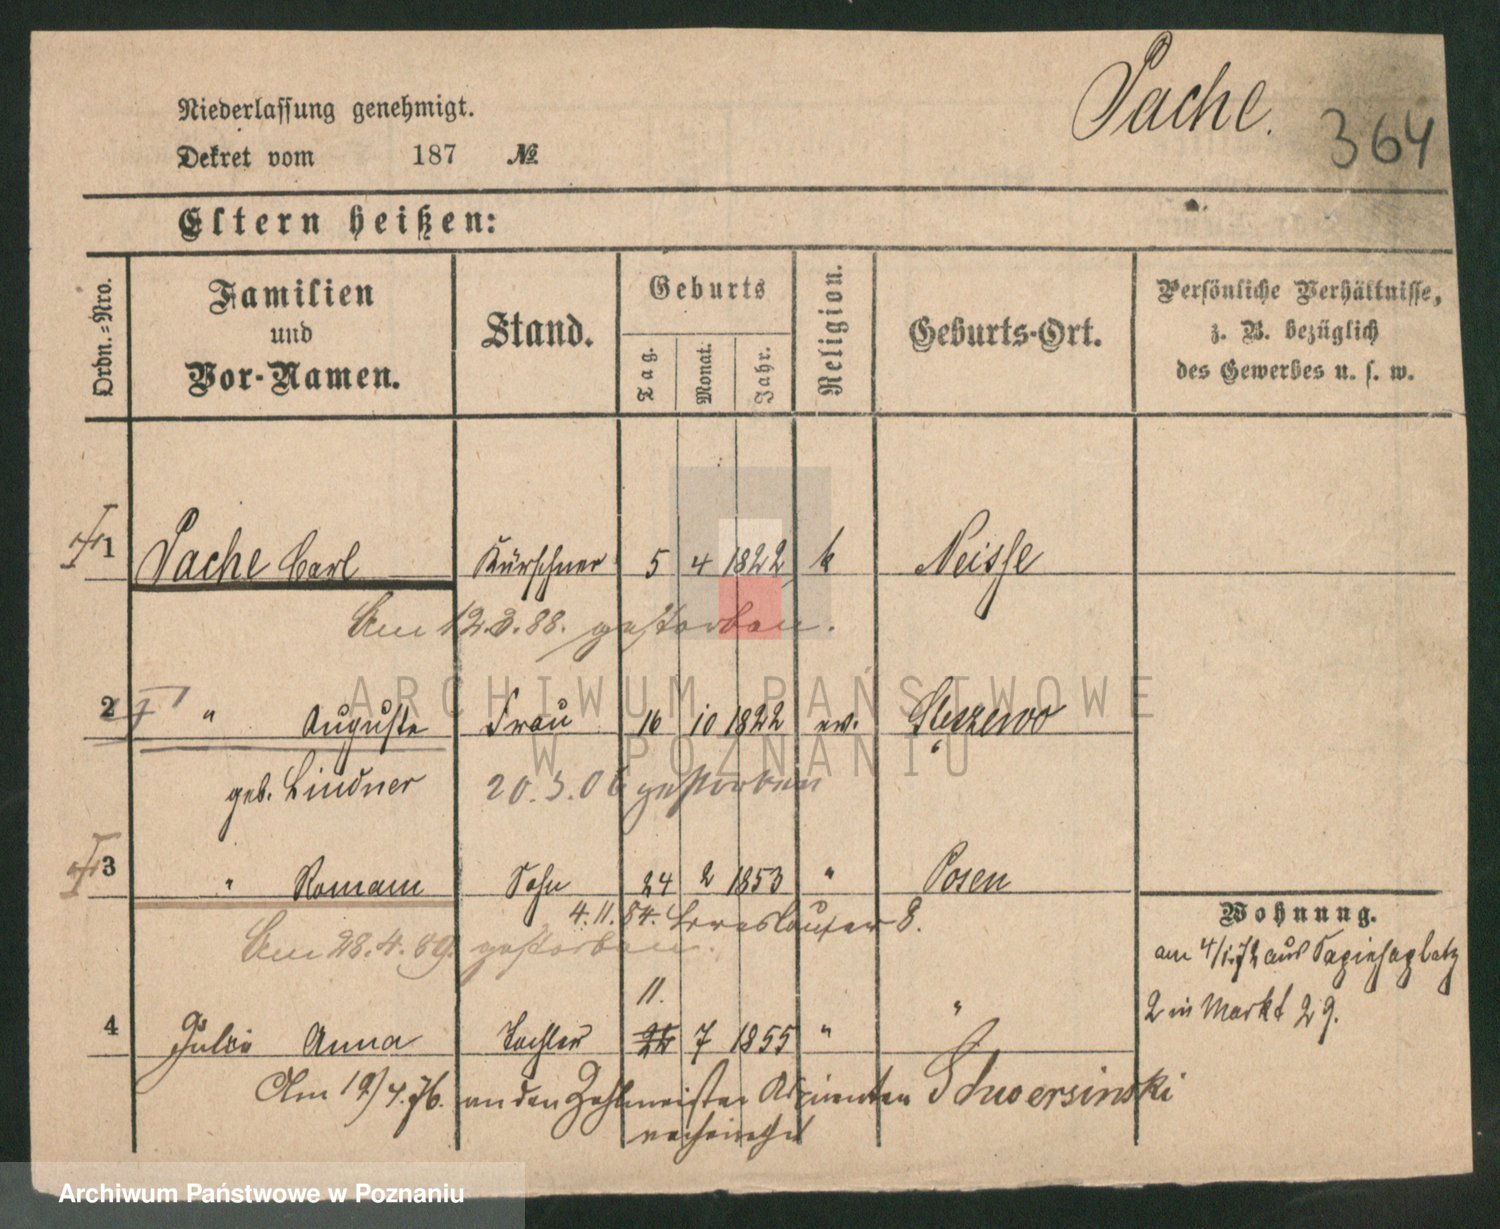 Pache.
364
Niederlassung genehmigt.
Dekret vom 187 №
Eltern heißen:
Ordn.=Nro.
Familien
und
Vor-Namen.
Stand.
Geburts
Tag.
Monat.
Jahr.
Religion.
Geburts-Ort.
Persönliche Verhältnisse,
z. B. bezüglich
des Gewerbes u. s. w.
1 Pache Carl Kürschner 5 4 1822 k Neisse
Am 12.3.88. gestorben.
2 " Auguste Frau 16 10 1822 ev. Steszewo
geb. Lindner 20.3.06 gestorben
3 " Romam Sohn 24 2 1853 " Posen
4.11.84. Breslauer 8.
Am 28.4.89. gestorben.
Wohnung.
am 4/1.72 aus Sapiehaplatz
2 in Markt 29.
11.
4 Julie Anna Tochter 24 7 1855 " "
Am 19/4.76. an den Zahlmeister Aspiranten Schwersinski
verheirathet
ARCHIWUM PAŃSTWOWE
W POZNANIU
Archiwum Państwowe w Poznaniu